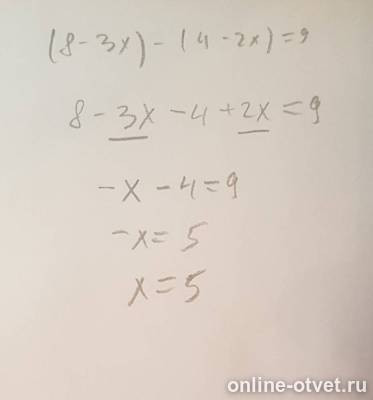 (8 - 3x) - (4 - 2x) = 9
8 - 3x - 4 + 2x = 9
-x - 4 = 9
-x = 5
x = 5
online-otvet.ru